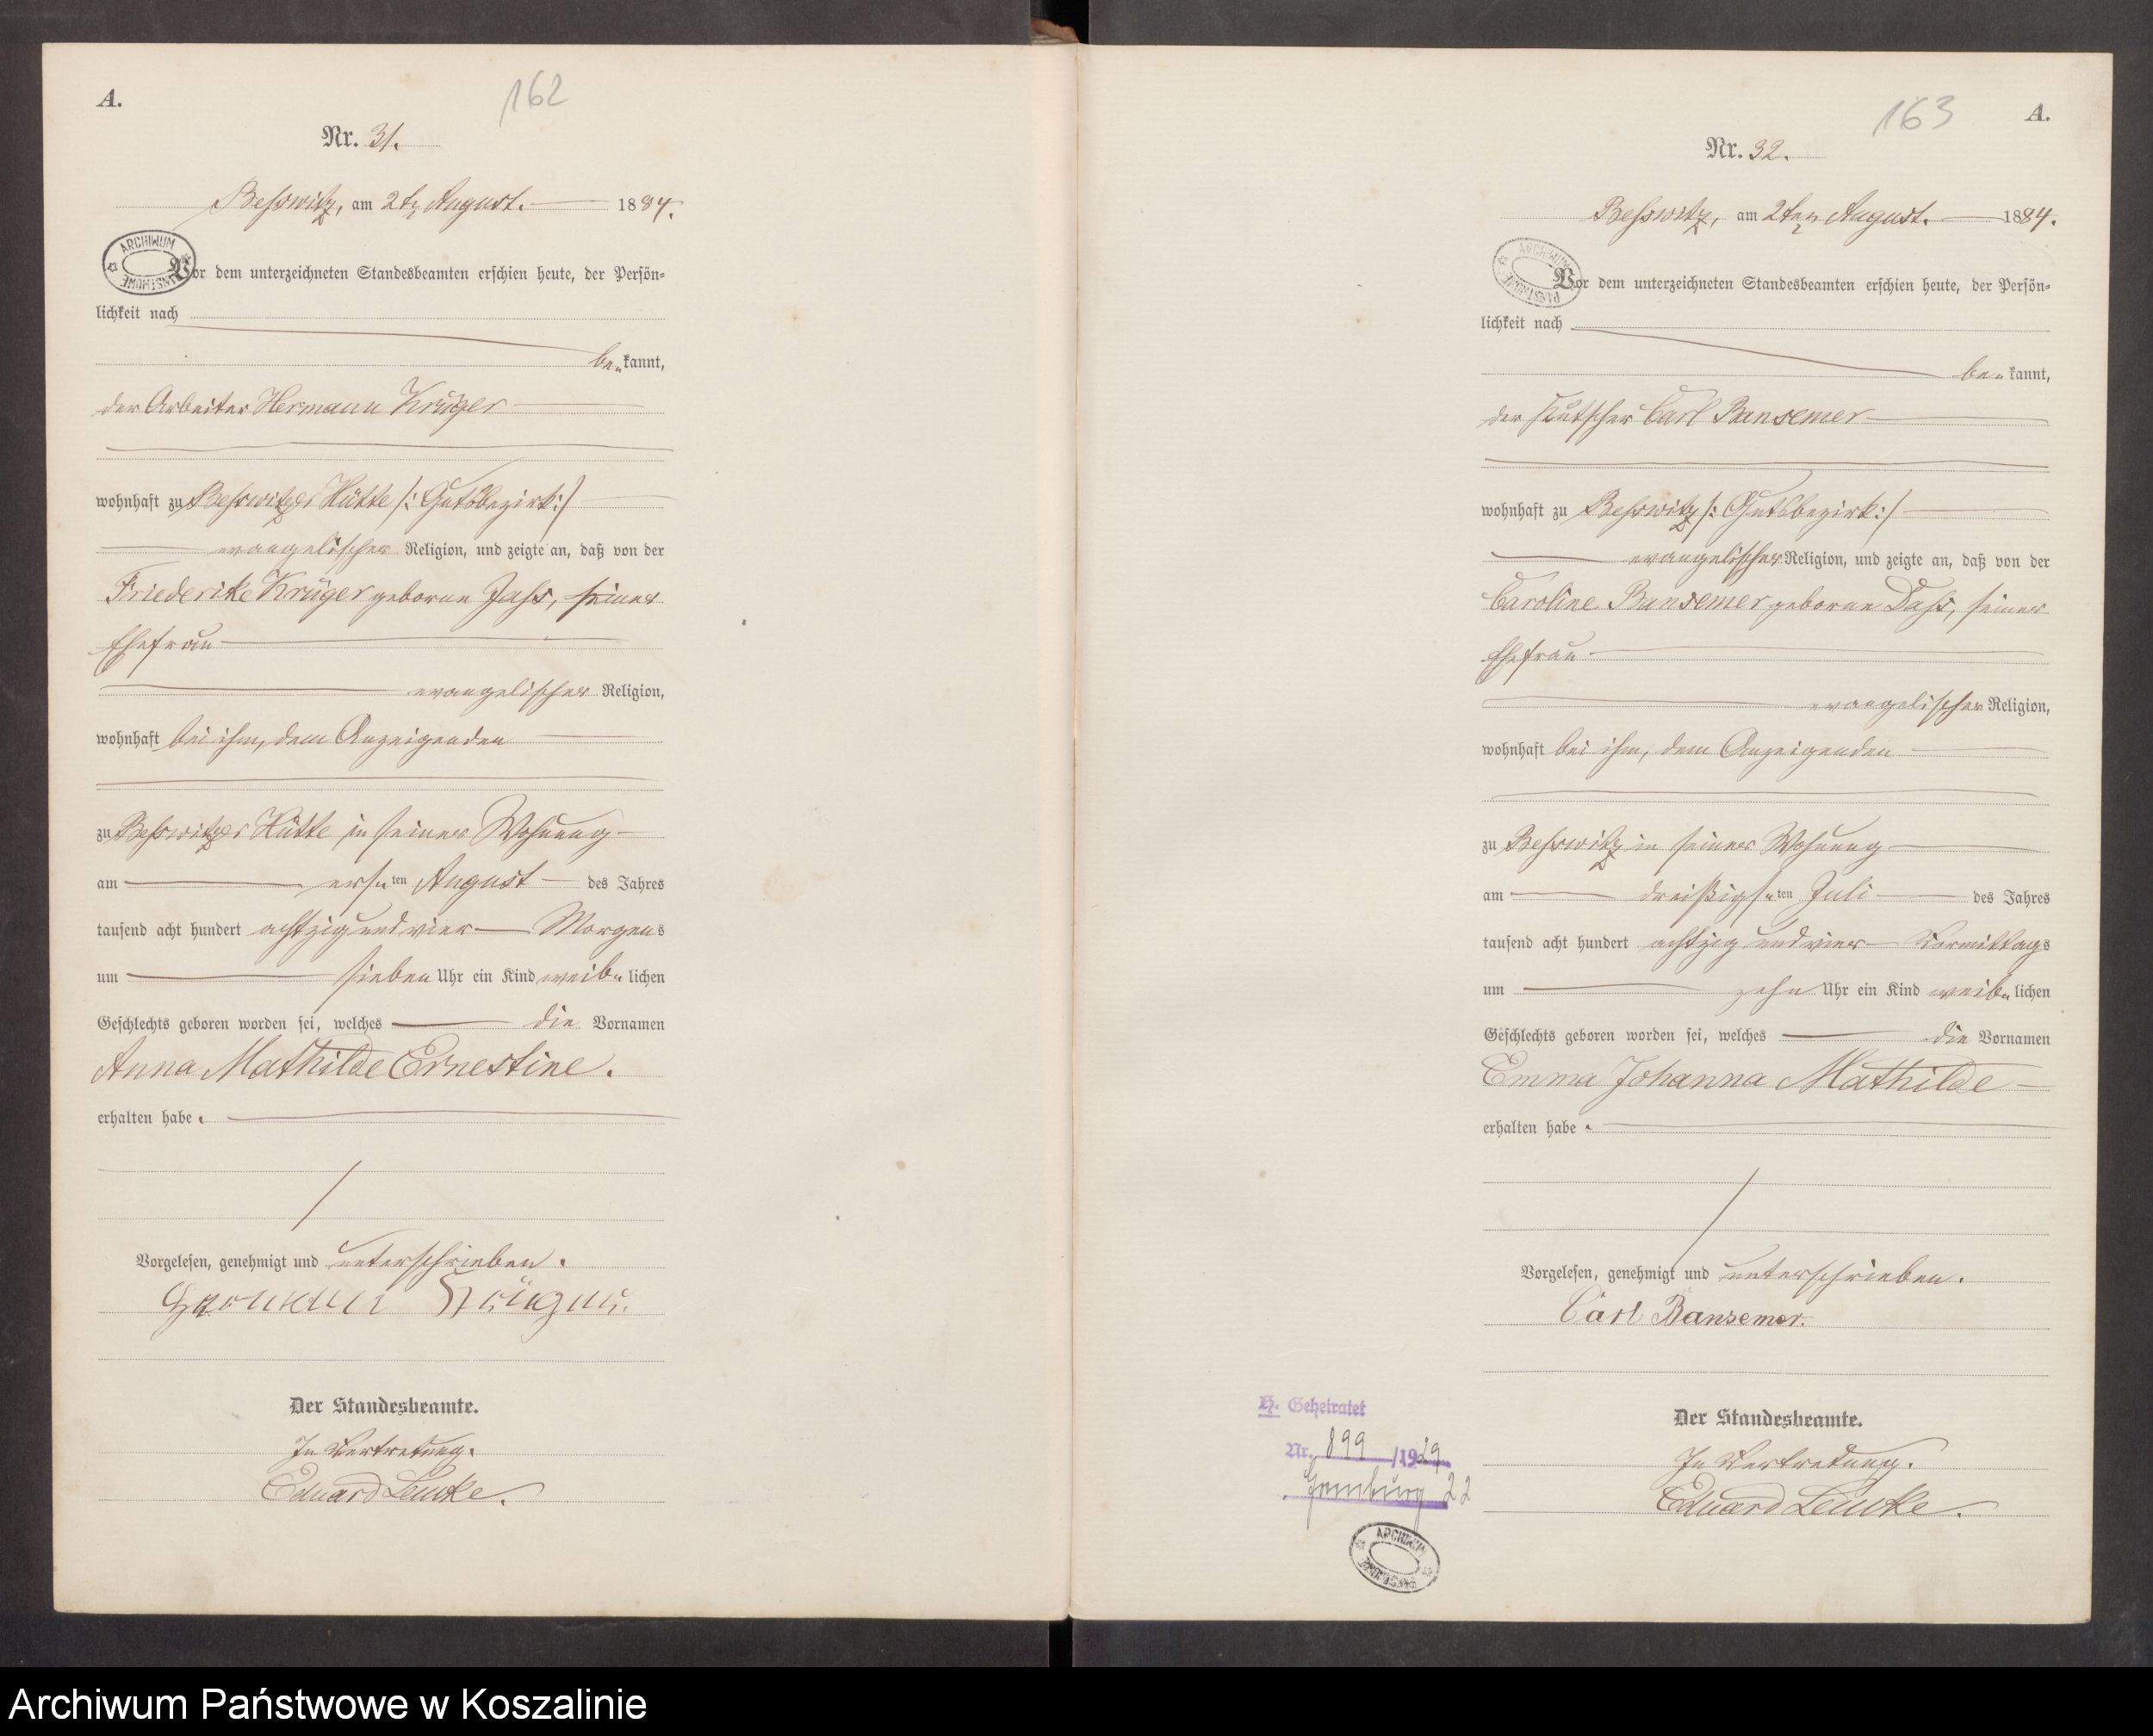 A.
162
Nr. 31.
Beßwitz, am 2tn August. 1884.
ARCHIWUM PAŃSTWOWE
Vor dem unterzeichneten Standesbeamten erschien heute, der Persön-
lichkeit nach
be-kannt,
der Arbeiter Hermann Krüger
wohnhaft zu Beßwitzer Hütte /: Gutsbezirk :/
evangelischer Religion, und zeigte an, daß von der
Friederike Krüger geborne Jahs, seiner
Ehefrau
evangelischer Religion,
wohnhaft bei ihm, dem Anzeigenden
zu Beßwitzer Hütte in seiner Wohnung
am ersten August des Jahres
tausend acht hundert achtzig und vier Morgens
um sieben Uhr ein Kind weib-lichen
Geschlechts geboren worden sei, welches die Vornamen
Anna Mathilde Ernestine.
erhalten habe.
Vorgelesen, genehmigt und unterschrieben.
Hermann Krüger
Der Standesbeamte.
In Vertretung.
Eduard Lemke.
163
A.
Nr. 32.
Beßwitz, am 2ten August. 1884.
ARCHIWUM PAŃSTWOWE
Vor dem unterzeichneten Standesbeamten erschien heute, der Persön-
lichkeit nach
be-kannt,
der Kutscher Carl Bansemer
wohnhaft zu Beßwitz /: Gutsbezirk :/
evangelischer Religion, und zeigte an, daß von der
Caroline Bansemer geborne Dahs, seiner
Ehefrau
evangelischer Religion,
wohnhaft bei ihm, dem Anzeigenden
zu Beßwitz in seiner Wohnung
am dreißigsten Juli des Jahres
tausend acht hundert achtzig und vier Vormittags
um zehn Uhr ein Kind weib-lichen
Geschlechts geboren worden sei, welches die Vornamen
Emma Johanna Mathilde
erhalten habe.
Vorgelesen, genehmigt und unterschrieben.
Carl Bansemer.
Der Standesbeamte.
In Vertretung.
Eduard Lemke.
H. Geheiratet
Nr. 899 /1929
Hamburg 22
ARCHIWUM PAŃSTWOWE
Archiwum Państwowe w Koszalinie